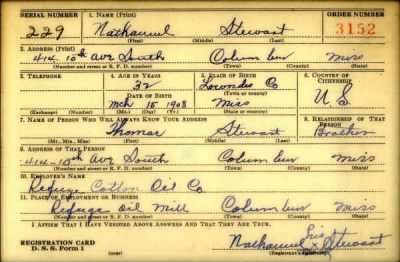 SERIAL NUMBER 1. NAME (Print) ORDER NUMBER
229 Nathaniel Stewart 3152
(First) (Middle) (Last)
2. ADDRESS (Print)
414 10th Ave South Columbus Miss
(Number and street or R. F. D. number) (Town) (County) (State)
3. TELEPHONE 4. AGE IN YEARS 5. PLACE OF BIRTH 6. COUNTRY OF CITIZENSHIP
32 Lowndes Co
DATE OF BIRTH (Town or county)
Mch 15 1908 Miss U S
(Exchange) (Number) (Mo.) (Day) (Yr.) (State or country)
7. NAME OF PERSON WHO WILL ALWAYS KNOW YOUR ADDRESS 8. RELATIONSHIP OF THAT PERSON
Thomas Stewart Brother
(Mr., Mrs., Miss) (First) (Middle) (Last)
9. ADDRESS OF THAT PERSON
414-10th Ave South Columbus Miss
(Number and street or R. F. D. number) (Town) (County) (State)
10. EMPLOYER'S NAME
Refuge Cotton Oil Co
11. PLACE OF EMPLOYMENT OR BUSINESS
Refuge Oil Mill Columbus Miss
(Number and street or R. F. D. number) (Town) (County) (State)
I AFFIRM THAT I HAVE VERIFIED ABOVE ANSWERS AND THAT THEY ARE TRUE.
REGISTRATION CARD his
D. S. S. Form 1 (over) Nathaniel x Stewart